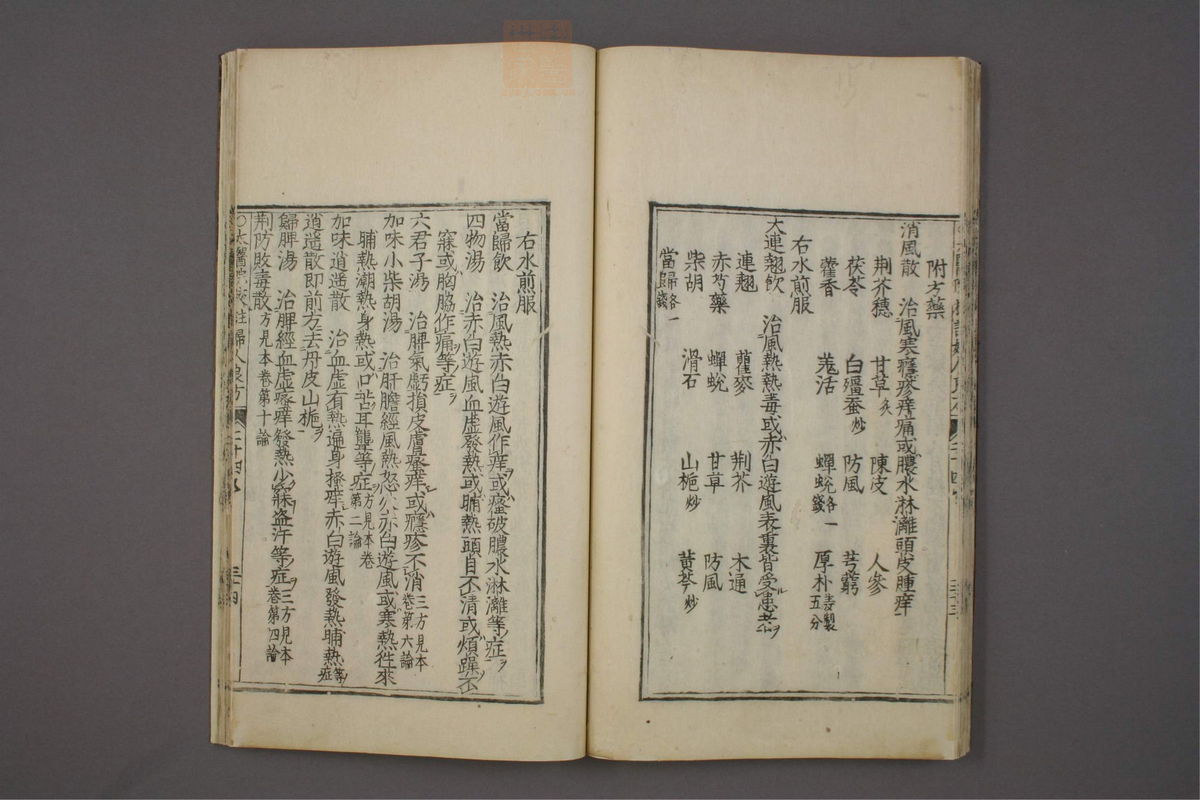 附方藥
消風散 治風寒癮疹痒痛或膿水淋灕頭皮腫痒
荆芥穗 甘草炙 陳皮 人參
茯苓 白殭蚕炒 防風 芎藭
藿香 羗活 蟬蛻各一錢 厚朴姜製五分
右水煎服
大連翹飲 治風熱熱毒或赤白遊風表裏皆受患者
連翹 瞿麥 荆芥 木通
赤芍藥 蟬蛻 甘草 防風
柴胡 滑石 山梔炒 黄芩炒
當歸各一錢
右水煎服
當歸飲 治風熱赤白遊風作痒或瘙破膿水淋灕等症
四物湯 治赤白遊風血虛發熱或晡熱頭目不清或煩躁不
寐或胸脇作痛等症
六君子湯 治脾氣虧損皮膚瘙痒或癮疹不消三方見本卷第六論
加味小柴胡湯 治肝膽經風熱怒火赤白遊風或寒熱徃來
晡熱潮熱身熱或口苦耳聾等症方見本卷第二論
加味逍遥散 治血虛有熱遍身搔痒赤白遊風發熱晡熱等症
逍遥散即前方去丹皮山梔
歸脾湯 治脾經血虛瘙痒發熱少寐盗汗等症三方見本卷第四論
荆防敗毒散方見本卷第十論
○太醫院校註婦人良方 二十四 三四